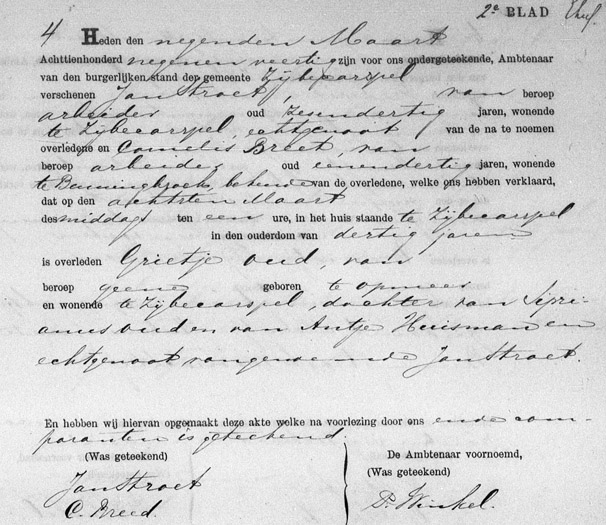 2e BLAD
4 Heden den negenden Maart
Achttienhonderd negenen veertig zijn voor ons ondergeteekende, Ambtenaar
van den burgerlijken stand der gemeente Zijbecarspel
verschenen Jan Stroet van beroep
arbeider oud zesendertig jaren, wonende
te Zijbecarspel, echtgenoot van de na te noemen
overledene en Cornelis Breet, van
beroep arbeider oud eenendertig jaren, wonende
te Benningbroek, bekende van de overledene, welke ons hebben verklaard,
dat op den achtsten Maart
des middags ten een ure, in het huis staande te Zijbecarspel
in den ouderdom van dertig jaren
is overleden Grietje Oud, van
beroep geene geboren te Opmeer
en wonende te Zijbecarspel, dochter van Sipri-
anus Oud en van Antje Huisman en
echtgenoot van genoemde Jan Stroet.
En hebben wij hiervan opgemaakt deze akte welke na voorlezing door ons ende com-
paranten is geteekend.
(Was geteekend)
De Ambtenaar voornoemd,
(Was geteekend)
Jan Stroet
C. Breed.
Winkel.